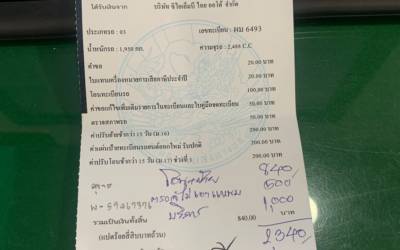 ได้รับเงินจาก บริษัท ซีไอเอ็มบี ไทย ออโต้ จำกัด
ประเภทรถ : 03 เลขทะเบียน : ผม 6493
น้ำหนักรถ : 1,950 กก. ความจุรถ : 2,488 C.C
ค่าขอ 20.00 บาท
ใบแทนเครื่องหมายการเสียภาษีประจำปี 20.00 บาท
โอนทะเบียนรถ 100.00 บาท
ค่าขอแก้ไขเพิ่มเติมรายการในทะเบียนและใบคู่มือจดทะเบียน 50.00 บาท
ตรวจสภาพรถ 50.00 บาท
ค่าปรับย้ายช้ากว่า 15 วัน (ม.16) 200.00 บาท
ค่าแผ่นป้ายทะเบียนรถยนต์ออกใหม่ รับปกติ 200.00 บาท
ค่าปรับโอนช้ากว่า 15 วัน (ม.17) ช่วงที่ 1 200.00 บาท
840/
500/
1,000
บริการ
รวมเป็นเงินทั้งสิ้น 840.00 บาท
(แปดร้อยสี่สิบบาทถ้วน) 2340/